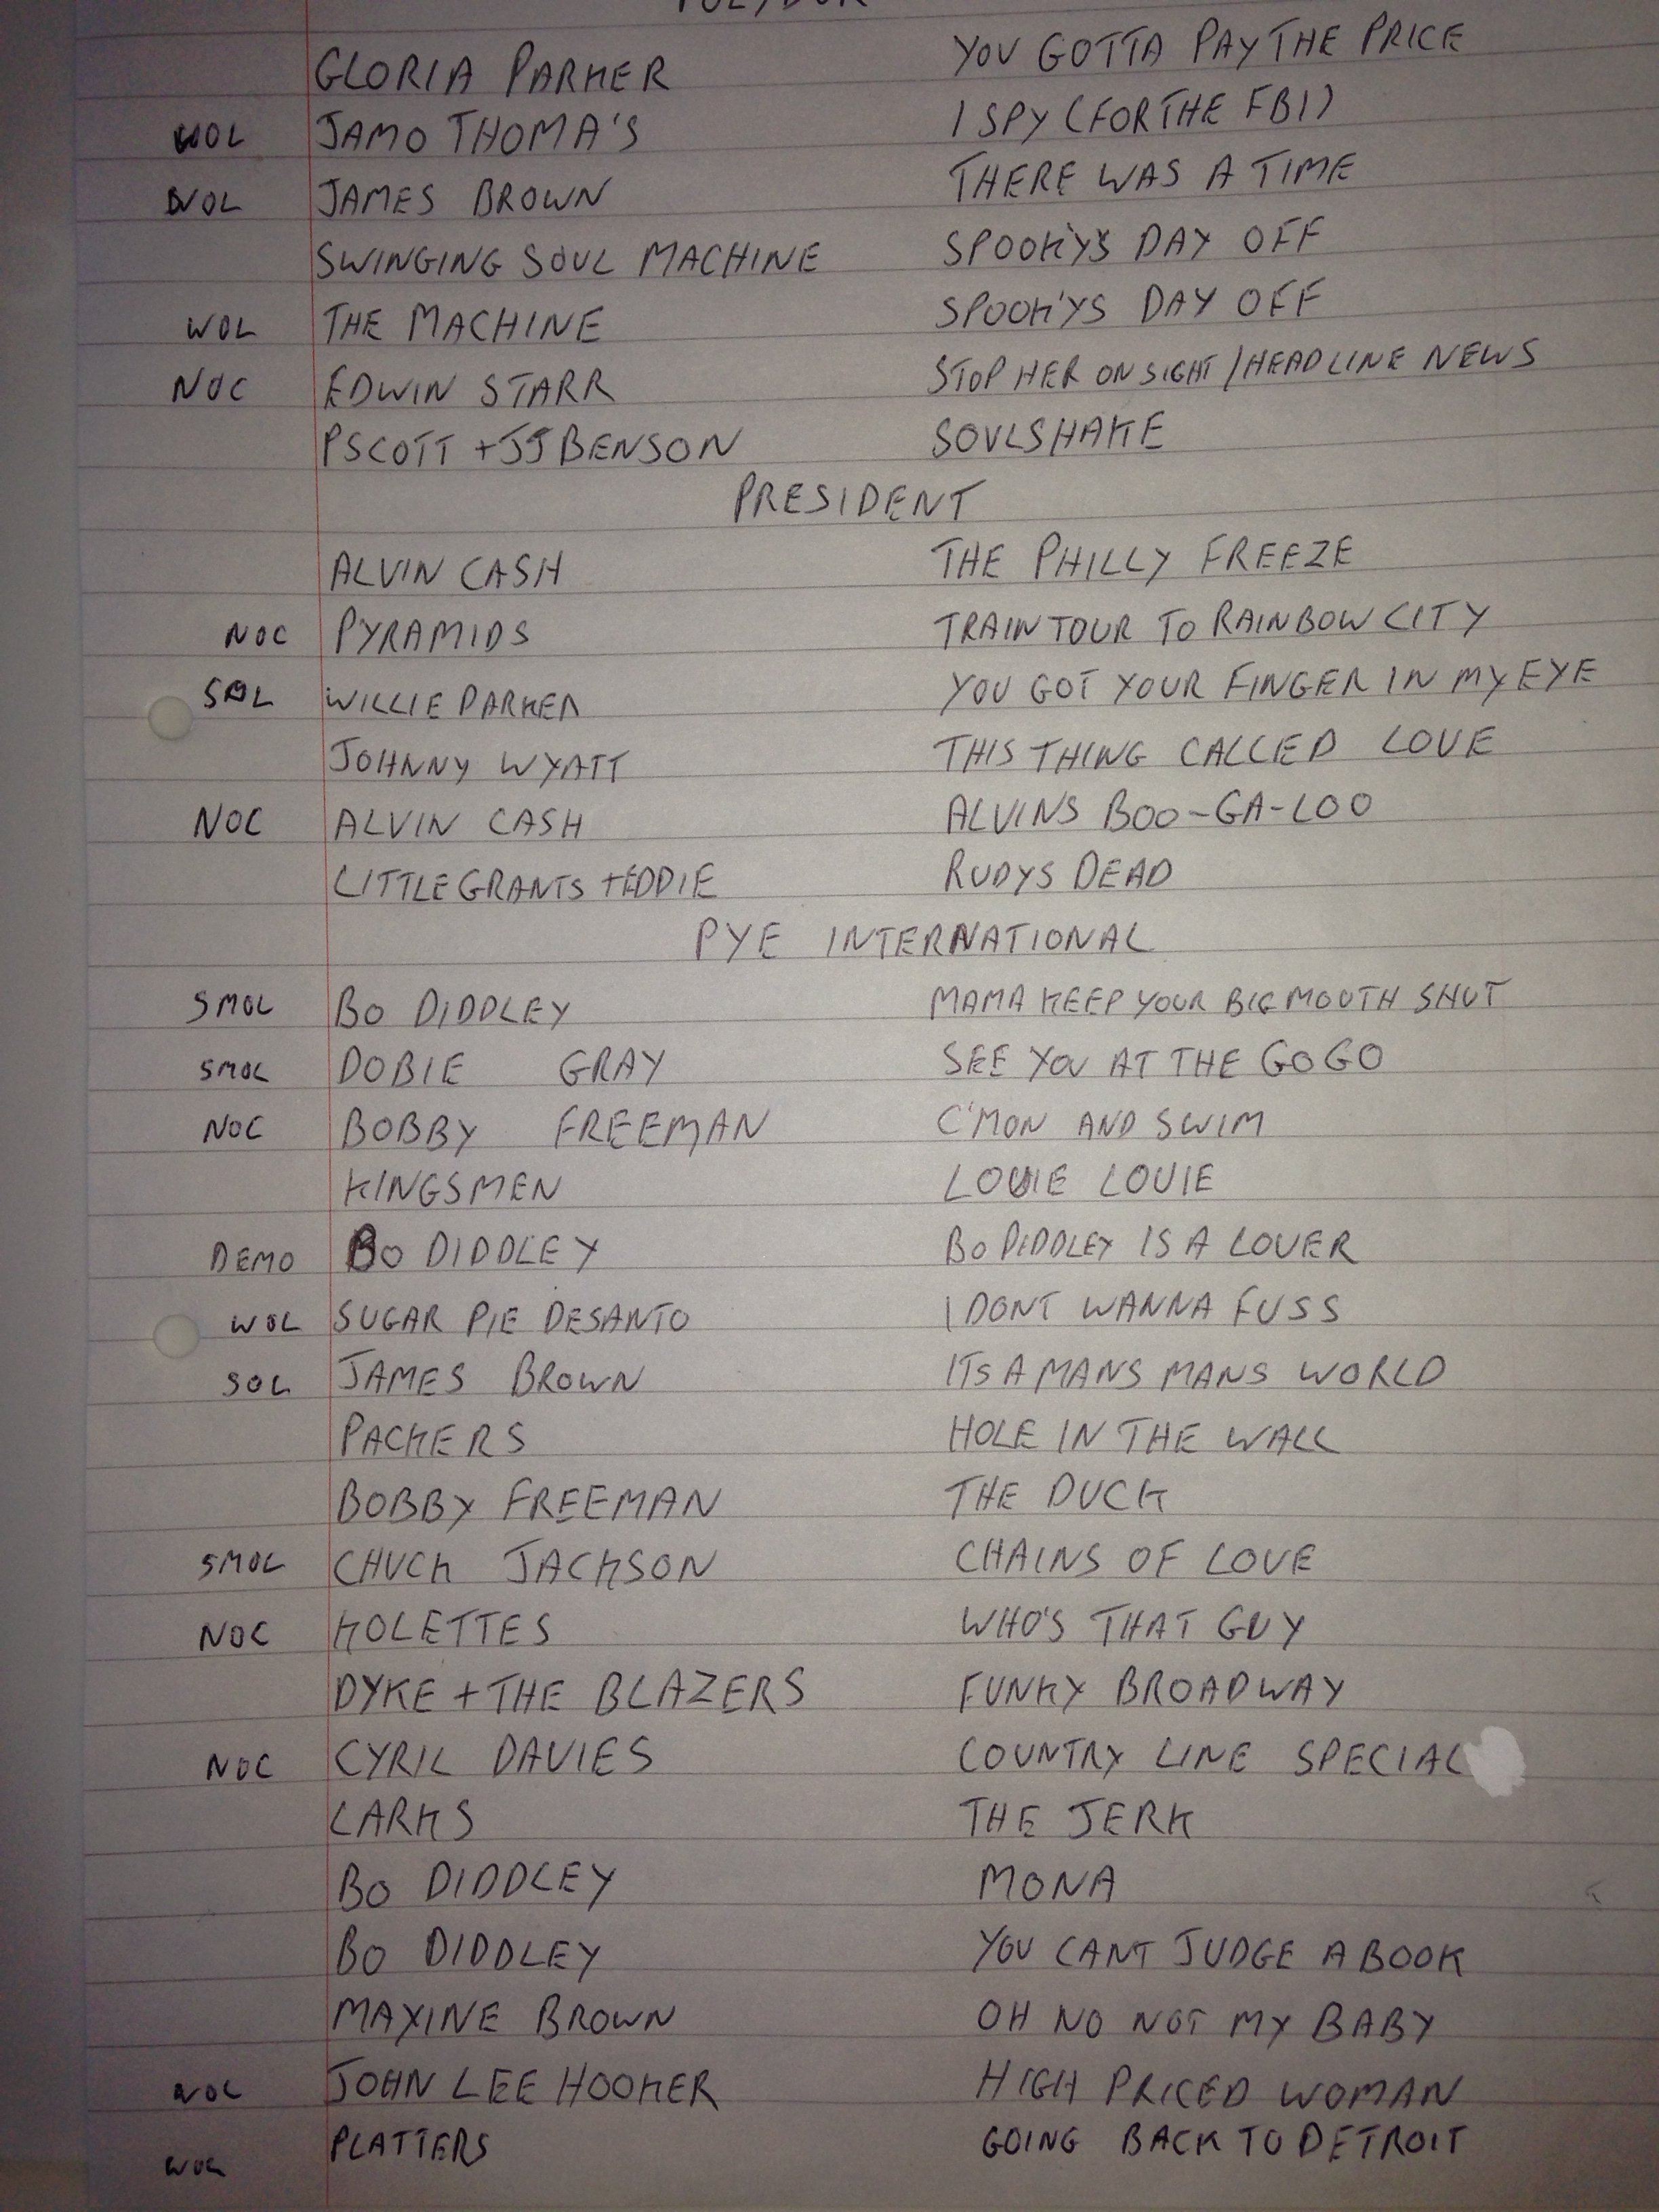 POLYDOR
GLORIA PARKER YOU GOTTA PAY THE PRICE
WOL JAMO THOMA'S I SPY (FOR THE FBI)
WOL JAMES BROWN THERE WAS A TIME
SWINGING SOUL MACHINE SPOOKY'S DAY OFF
WOL THE MACHINE SPOOK'YS DAY OFF
NOC EDWIN STARR STOP HER ON SIGHT / HEADLINE NEWS
P SCOTT + JJ BENSON SOULSHAKE
PRESIDENT
ALVIN CASH THE PHILLY FREEZE
NOC PYRAMIDS TRAIN TOUR TO RAINBOW CITY
SOL WILLIE PARKER YOU GOT YOUR FINGER IN MY EYE
JOHNNY WYATT THIS THING CALLED LOVE
NOC ALVIN CASH ALVINS BOO-GA-LOO
LITTLE GRANTS + EDDIE RUDYS DEAD
PYE INTERNATIONAL
SMOL BO DIDDLEY MAMA KEEP YOUR BIG MOUTH SHUT
SMOL DOBIE GRAY SEE YOU AT THE GO GO
NOC BOBBY FREEMAN C'MON AND SWIM
KINGSMEN LOUIE LOUIE
DEMO BO DIDDLEY BO DIDDLEY IS A LOVER
WOL SUGAR PIE DESANTO I DONT WANNA FUSS
SOL JAMES BROWN ITS A MANS MANS WORLD
PACKERS HOLE IN THE WALL
BOBBY FREEMAN THE DUCK
SMOL CHUCK JACKSON CHAINS OF LOVE
NOC KOLETTES WHO'S THAT GUY
DYKE + THE BLAZERS FUNKY BROADWAY
NOC CYRIL DAVIES COUNTRY LINE SPECIAL
LARKS THE JERK
BO DIDDLEY MONA
BO DIDDLEY YOU CANT JUDGE A BOOK
MAXINE BROWN OH NO NOT MY BABY
WOL JOHN LEE HOOKER HIGH PRICED WOMAN
WOL PLATTERS GOING BACK TO DETROIT